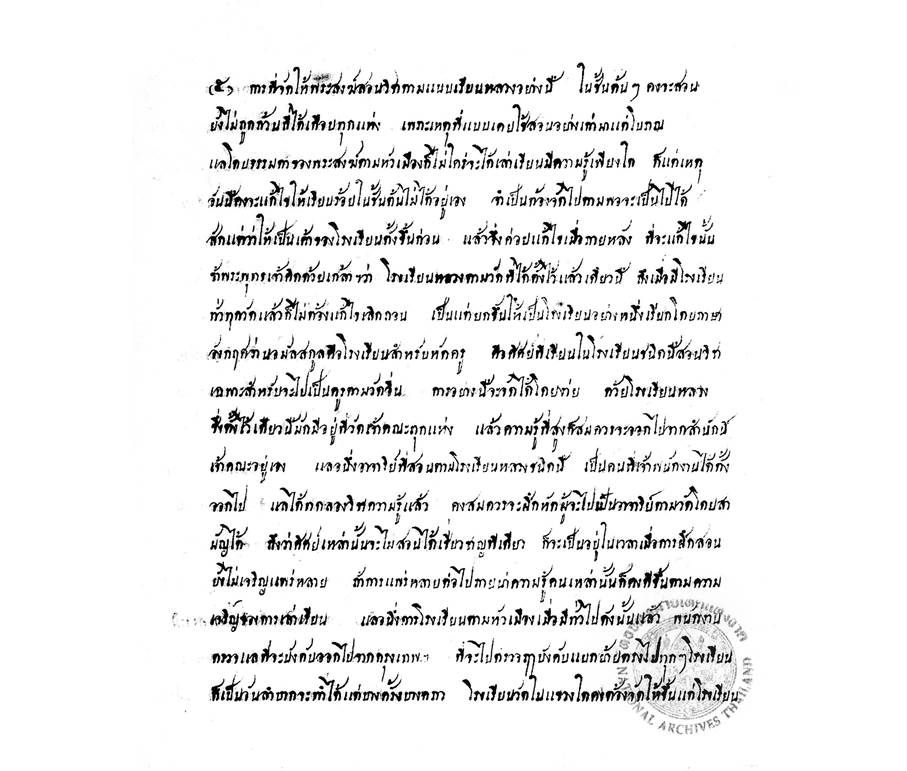 (๕) การที่จัดให้พระสงฆ์สอนวิชาตามแบบเรียนหลวงอย่างนี้ ในชั้นต้นๆ คงจะสอน
ยังไม่ถูกถ้วนดีได้เกือบทุกแห่ง เพราะเหตุที่แบบเคยใช้สอนอย่างเก่ามาแต่โบราณ
แลโดยธรรมดาของพระสงฆ์ตามหัวเมืองก็ไม่ใคร่จะได้เล่าเรียนมีความรู้เพียงใด ก็แต่เหตุ
อันนี้คงจะแก้ไขให้เรียบร้อยในชั้นต้นไม่ได้อยู่เอง จำเป็นต้องจัดไปตามพอจะเป็นไปได้
สักแต่ว่าให้เป็นเค้าของโรงเรียนตั้งขึ้นก่อน แล้วจึงค่อยแก้ไขเมื่อภายหลัง ที่จะแก้ไขนั้น
ข้าพระพุทธเจ้าคิดด้วยเกล้าฯ ว่า โรงเรียนหลวงตามวัดที่ได้ตั้งไว้แล้วเดี๋ยวนี้ ถึงเมื่อมีโรงเรียน
ทั่วทุกวัดแล้วก็ไม่ต้องแก้ไขเลิกถอน เป็นแต่ยกขึ้นให้เป็นโรงเรียนอย่างหนึ่งเรียกโดยภาษา
อังกฤษว่านอมัลสกูลคือโรงเรียนสำหรับหัดครู คือศิษย์ที่เรียนในโรงเรียนชนิดนี้สอนวิชา
เฉพาะสำหรับจะไปเป็นครูตามวัดอื่น การอย่างนี้จะจัดได้โดยง่าย ด้วยโรงเรียนหลวง
ซึ่งตั้งไว้เดี๋ยวนี้มักมีอยู่ที่วัดเจ้าคณะทุกแห่ง แล้วความรู้ที่สูงก็สมควรจะออกไปจากสำนักนี้
เจ้าคณะอยู่เอง แลอนึ่งอาจารย์ที่สอนตามโรงเรียนหลวงชนิดนี้ เป็นคนที่เจ้าพนักงานได้ตั้ง
ออกไป แลได้ทดลองวิชาความรู้แล้ว คงสมควรจะฝึกหัดผู้จะไปเป็นอาจารย์ตามวัดโดยสา
มัญได้ ถึงว่าศิษย์เหล่านั้นจะไปสอนได้เชี่ยวชาญทีเดียว ก็จะเป็นอยู่ในเวลาเมื่อการฝึกสอน
ยังไม่เจริญแพร่หลาย ถ้าการแพร่หลายต่อไปภายน่าความรู้คนเหล่านั้นก็คงดีขึ้นตามความ
เจริญของการเล่าเรียน แลอนึ่งการโรงเรียนตามหัวเมืองเมื่อมีทั่วไปดังนั้นแล้ว พนักงาน
ตรวจแลที่จะบังคับออกไปจากกรุงเทพฯ ที่จะไปตรวจตราบังคับแยกย้ายตรงไปทุกๆ โรงเรียน
ก็เป็นอันลำบากจะทำได้แต่บางครั้งบางคราว โรงเรียนวัดในแขวงใดคงต้องจัดให้ขึ้นแก่โรงเรียน
NATIONAL ARCHIVES THAILAND